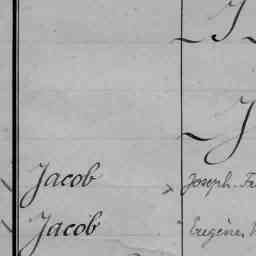 J
J
Jacob Joseph-
Jacob Eugène